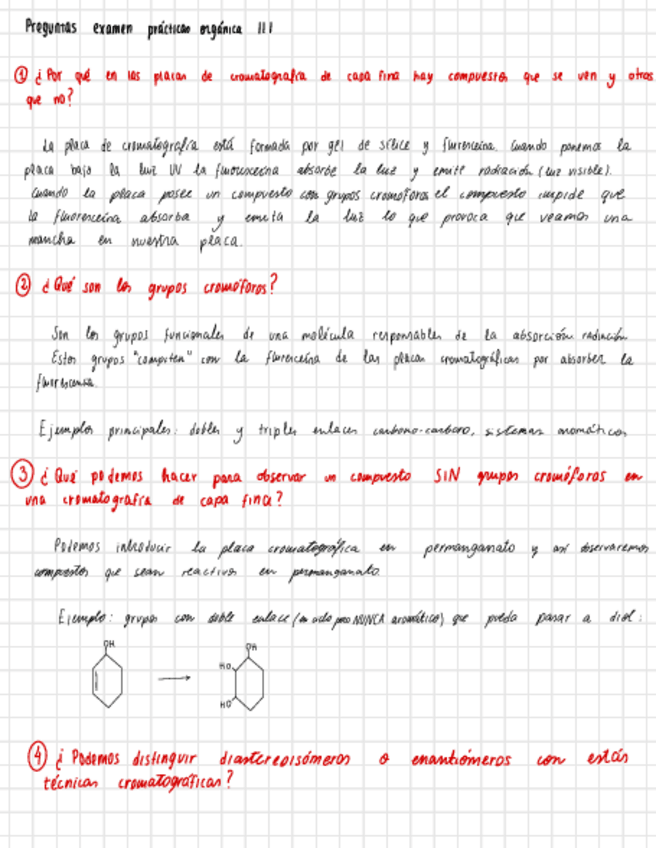 Preguntas examen prácticas orgánica III
① ¿Por qué en las placas de cromatografía de capa fina hay compuestos que se ven y otros
que no?
La placa de cromatografía está formada por gel de sílice y fluoresceína. Cuando ponemos la
placa bajo la luz UV la fluoresceína absorbe la luz y emite radiación (luz visible).
Cuando la placa posee un compuesto con grupos cromóforos el compuesto impide que
la fluoresceína absorba y emita la luz lo que provoca que veamos una
mancha en nuestra placa.
② ¿Qué son los grupos cromóforos?
Son los grupos funcionales de una molécula responsables de la absorción radiación
Estos grupos "compiten" con la fluoresceína de las placas cromatográficas por absorber la
fluorescencia.
Ejemplos principales: dobles y triples enlaces carbono-carbono, sistemas aromáticos
③ ¿Qué podemos hacer para observar un compuesto SIN grupos cromóforos en
una cromatografía de capa fina?
Podemos introducir la placa cromatográfica en permanganato y así observaremos
compuestos que sean reactivos en permanganato.
Ejemplo: grupos con doble enlace (en ciclo pero NUNCA aromático) que pueda pasar a diol:
OH
OH
HO
HO
④ ¿Podemos distinguir diastereoisómeros o enantiómeros con estás
técnicas cromatográficas?